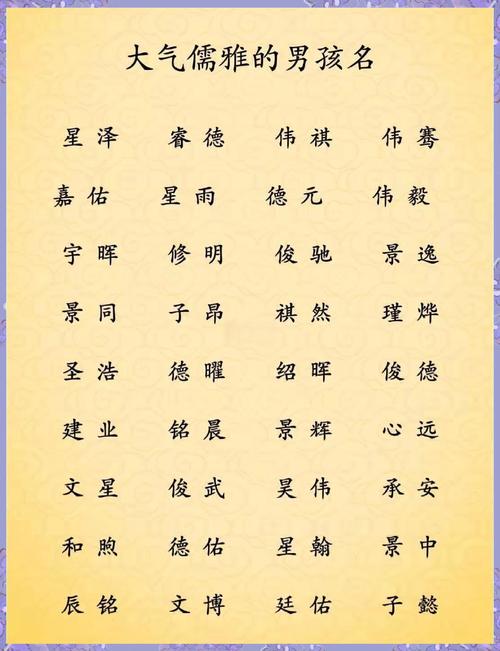 大气儒雅的男孩名
星泽 睿德 伟祺 伟骞
嘉佑 星雨 德元 伟毅
宇晖 修明 俊驰 景逸
景同 子昂 祺然 瑾烨
圣浩 德曜 绍晖 俊德
建业 铭晨 景辉 心远
文星 俊武 昊伟 承安
和煦 德佑 星翰 景中
辰铭 文博 廷佑 子懿